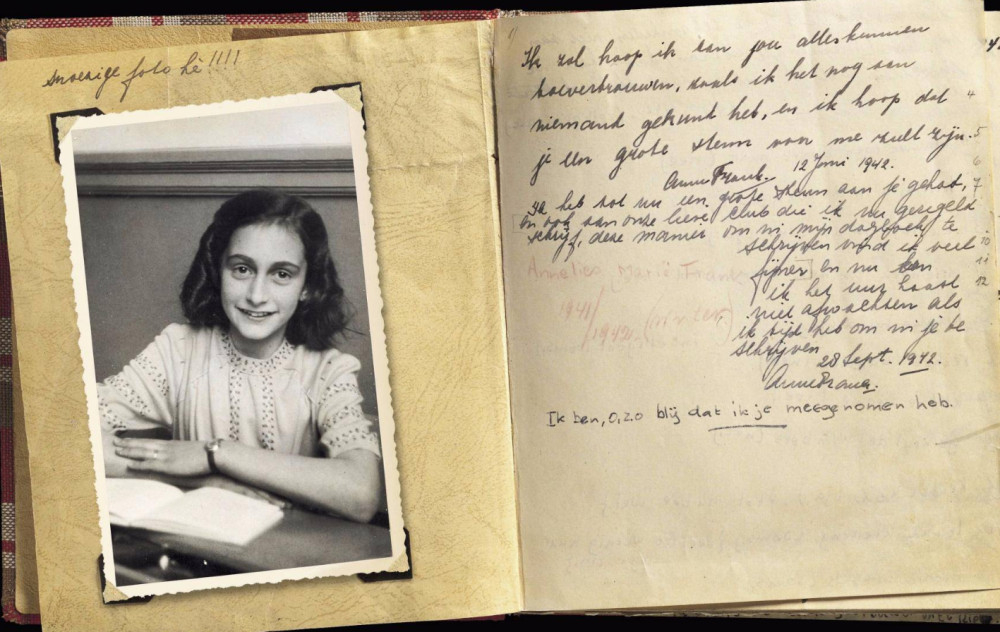 snoezige foto hè!!!!
Ik zal hoop ik aan jou alles kunnen
toevertrouwen, zoals ik het nog aan
niemand gekund heb, en ik hoop dat
je een grote steun voor me zult zijn.
Anne Frank. 12 Juni 1942.
Ik heb tot nu een grote steun aan je gehad,
en ook aan onze lieve club die ik nu geregeld
schrijf, deze manier om in mijn dagboek te
schrijven vind ik veel
fijner en nu kan
ik het uur haast
niet afwachten als
ik tijd heb om in je te
schrijven
28 Sept. 1942.
Anne Frank.
Annelies Marie Frank
1941/
/1942
Ik ben, o, zo blij dat ik je meegenomen heb.
4
5
6
7
10
11
12